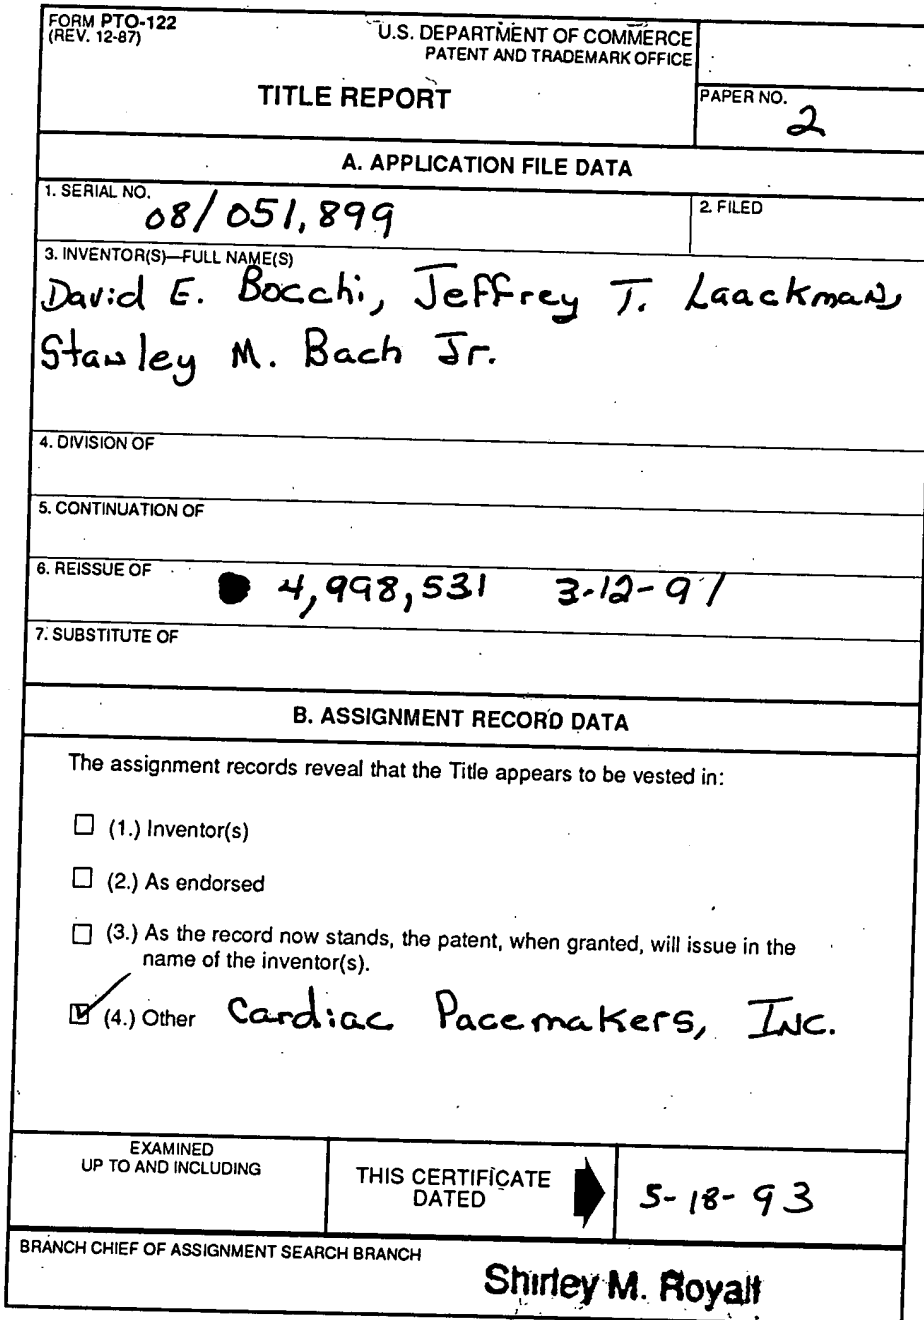 FORM PTO-122
(REV. 12-87)
U.S. DEPARTMENT OF COMMERCE
PATENT AND TRADEMARK OFFICE
TITLE REPORT
PAPER NO.
2
A. APPLICATION FILE DATA
1. SERIAL NO.
08/051,899
2. FILED
3. INVENTOR(S)—FULL NAME(S)
David E. Bocchi, Jeffrey T. Laackman,
Stanley M. Bach Jr.
4. DIVISION OF
5. CONTINUATION OF
6. REISSUE OF
4,998,531 3-12-91
7. SUBSTITUTE OF
B. ASSIGNMENT RECORD DATA
The assignment records reveal that the Title appears to be vested in:
(1.) Inventor(s)
(2.) As endorsed
(3.) As the record now stands, the patent, when granted, will issue in the
name of the inventor(s).
(4.) Other Cardiac Pacemakers, Inc.
EXAMINED
UP TO AND INCLUDING
THIS CERTIFICATE
DATED
5-18-93
BRANCH CHIEF OF ASSIGNMENT SEARCH BRANCH
Shirley M. Royall